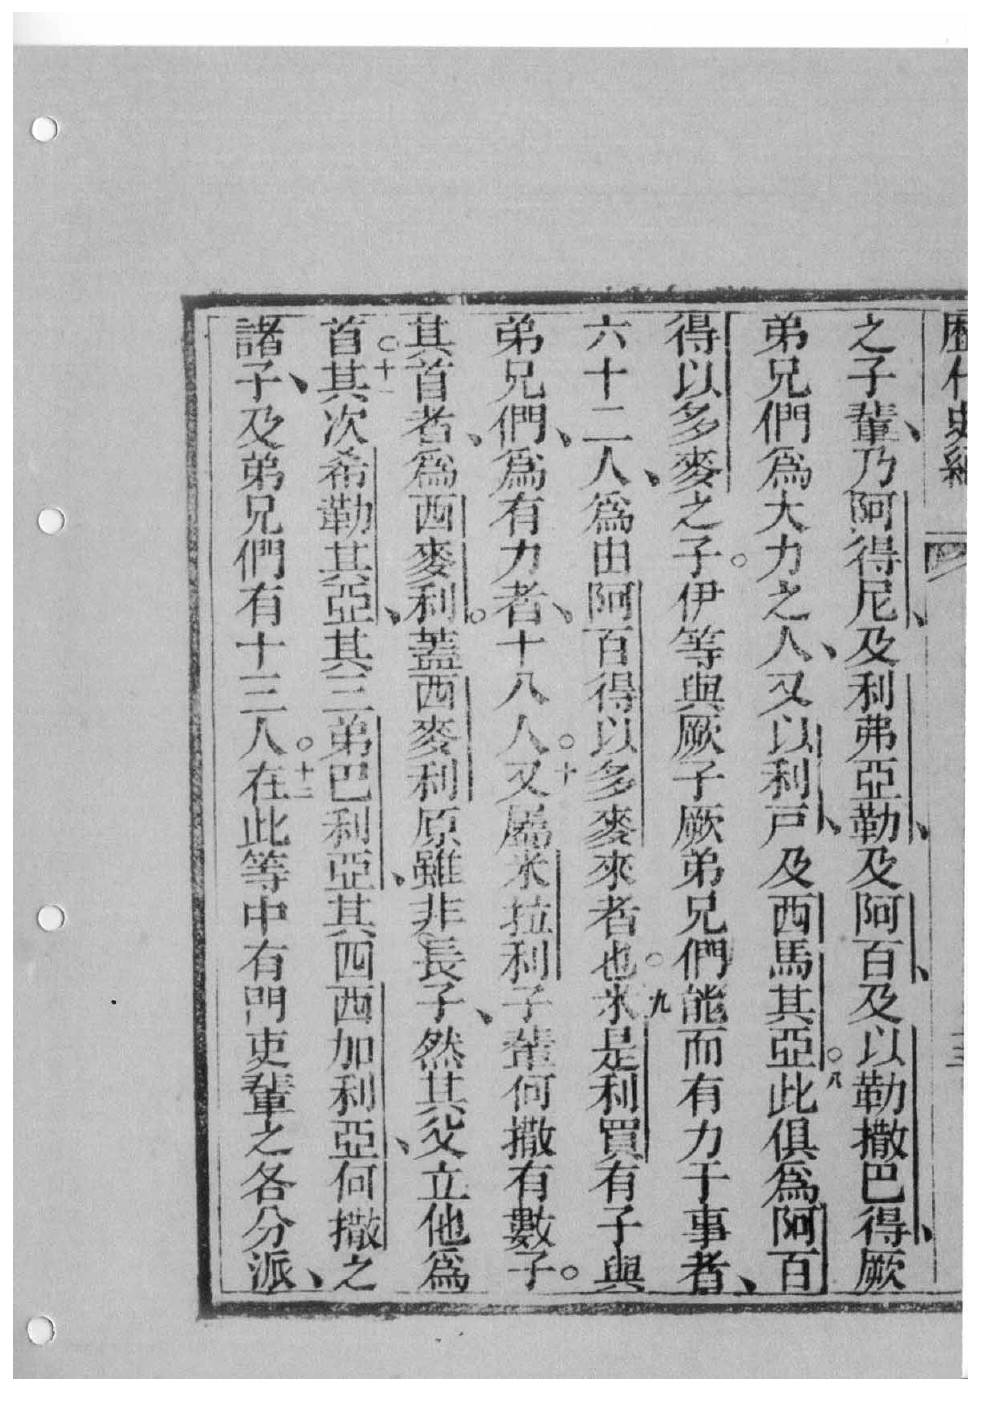 歷代史紀
之子輩、乃阿得尼、及利弗亞勒、及阿百、及以勒撒巴得、厥
弟兄們爲大力之人、又以利戸、及西馬其亞。八此俱爲阿百
得以多麥之子。伊等與厥子厥弟兄們能而有力于事者、
六十二人、爲由阿百得以多麥來者也。九米是利買有子與
弟兄們、爲有力者、十八人。十又屬米拉利子輩何撒有數子。
其首者、爲西麥利。蓋西麥利原雖非長子、然其父立他爲
首。十一其次希勒其亞、其三弟巴利亞、其四西加利亞、何撒之
諸子、及弟兄們有十三人。十二在此等中有門吏輩之各分派、